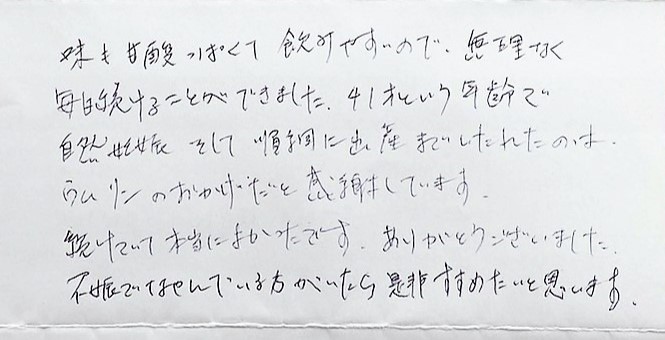 味も甘酸っぱくて飲みやすいので、無理なく
毎日続けることができました。41才という年齢で
自然妊娠 そして順調に出産までいたれたのは、
ウムリンのおかげだと感謝しています。
続けていて本当によかったです。ありがとうございました。
不妊でなやんでいる方がいたら是非すすめたいと思います。